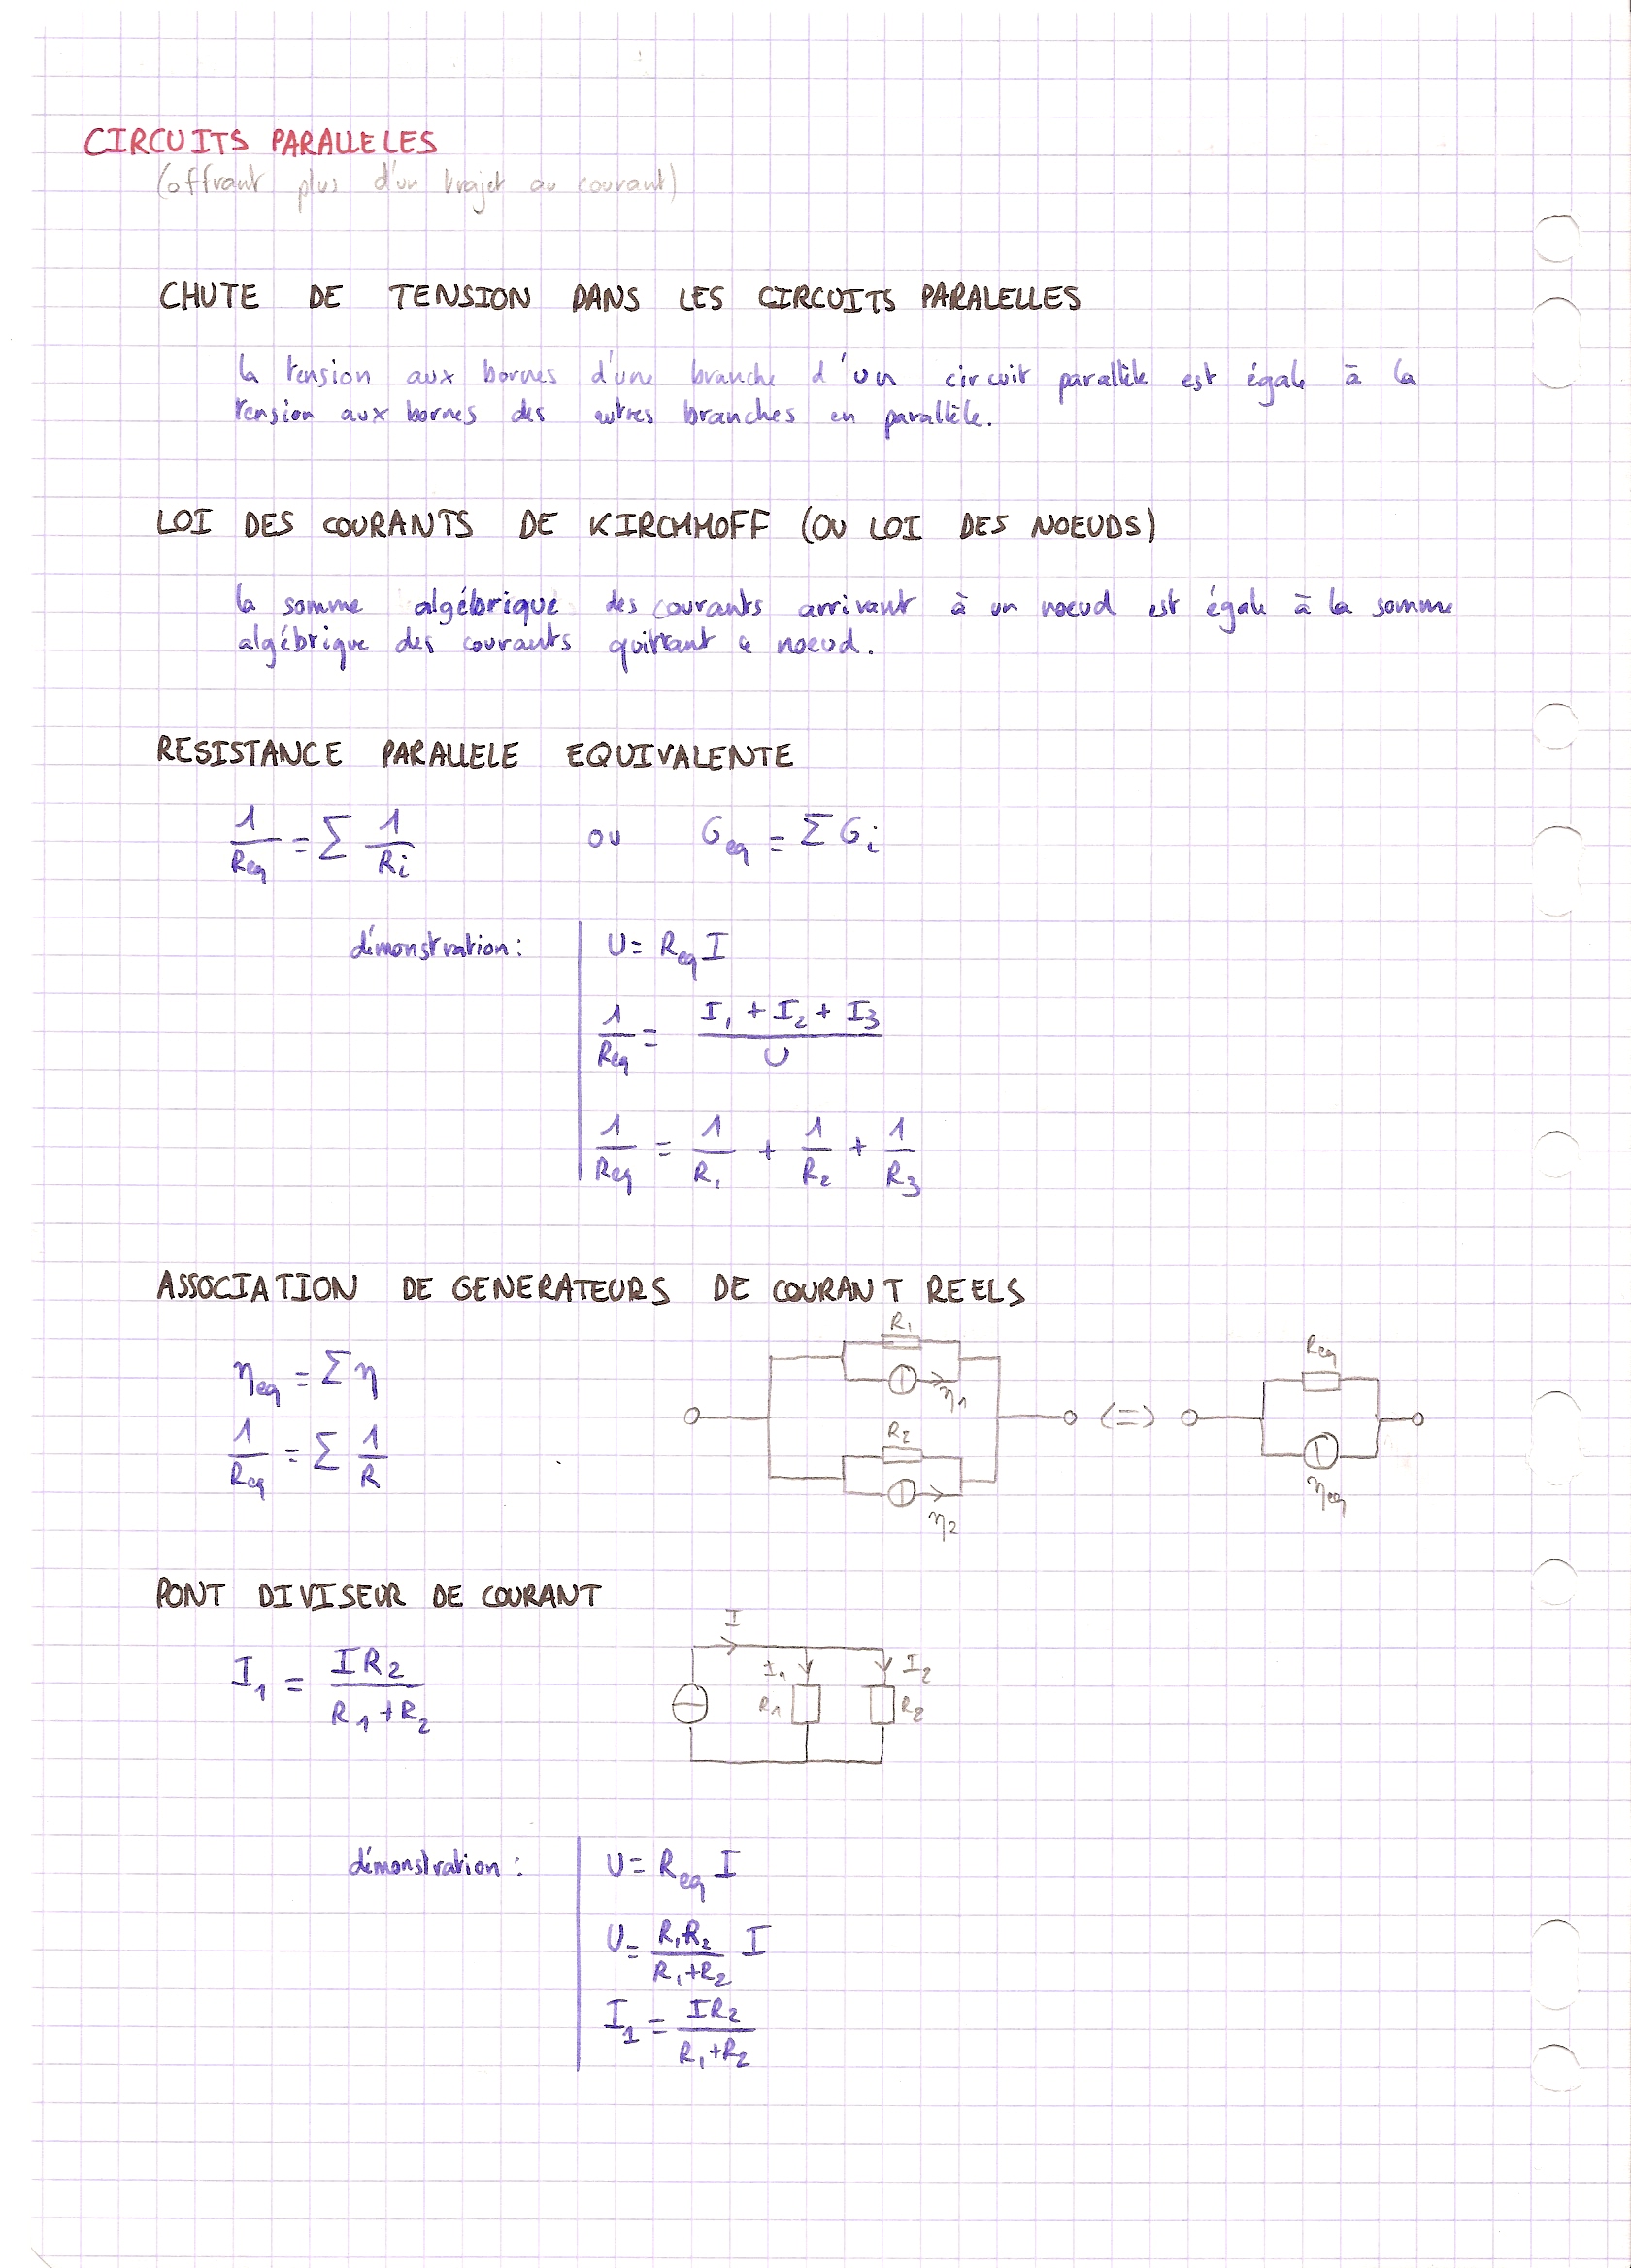 CIRCUITS PARALLELES
(offrant plus d'un trajet au courant)
CHUTE DE TENSION DANS LES CIRCUITS PARALELLES
la tension aux bornes d'une branche d'un circuit parallèle est égale à la
tension aux bornes des autres branches en parallèle.
LOI DES COURANTS DE KIRCHHOFF (OU LOI DES NOEUDS)
la somme algébrique des courants arrivant à un noeud est égale à la somme
algébrique des courants quittant ce noeud.
RESISTANCE PARALLELE EQUIVALENTE
1/Req = Σ 1/Ri ou Geq = Σ Gi
démonstration : U = Req I
1/Req = (I1 + I2 + I3)/U
1/Req = 1/R1 + 1/R2 + 1/R3
ASSOCIATION DE GENERATEURS DE COURANT REELS
ηeq = Σ η
1/Req = Σ 1/R
R1
η1
R2
η2
(=)
Req
ηeq
PONT DIVISEUR DE COURANT
I1 = IR2/(R1+R2)
I
I1 I2
R1 R2
démonstration : U = Req I
U = R1R2/(R1+R2) I
I1 = IR2/(R1+R2)